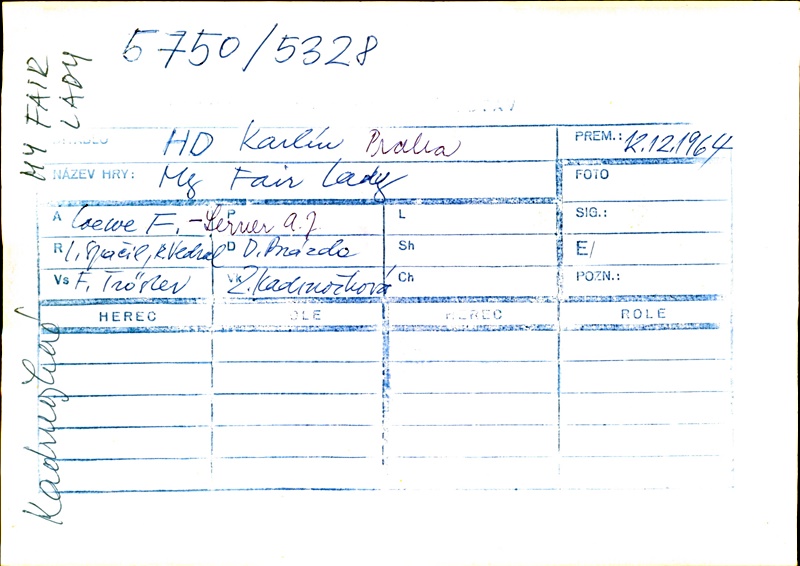 5750/5328
MY FAIR
LADY
HD Karlín Praha
PREM.: 12.12.1964
NÁZEV HRY: My Fair Lady
FOTO
A Loewe F. - Lerner A. J
P
L
SIG.:
R K. Vedral
D D. Prázda
Sh
E/
Vs F. Tröster
Vk Z. Kadrnožková
Ch
POZN.:
HEREC
OLE
HEREC
ROLE